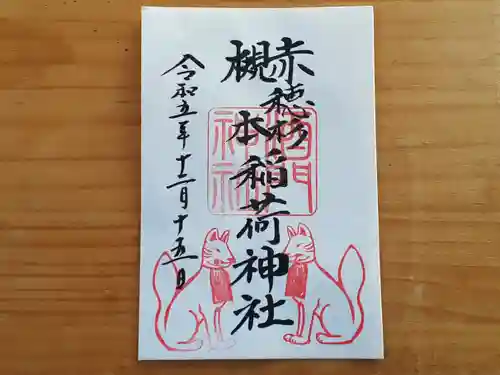 赤穂杉
槻本
稲荷神社
令和五年十二月十五日
神社